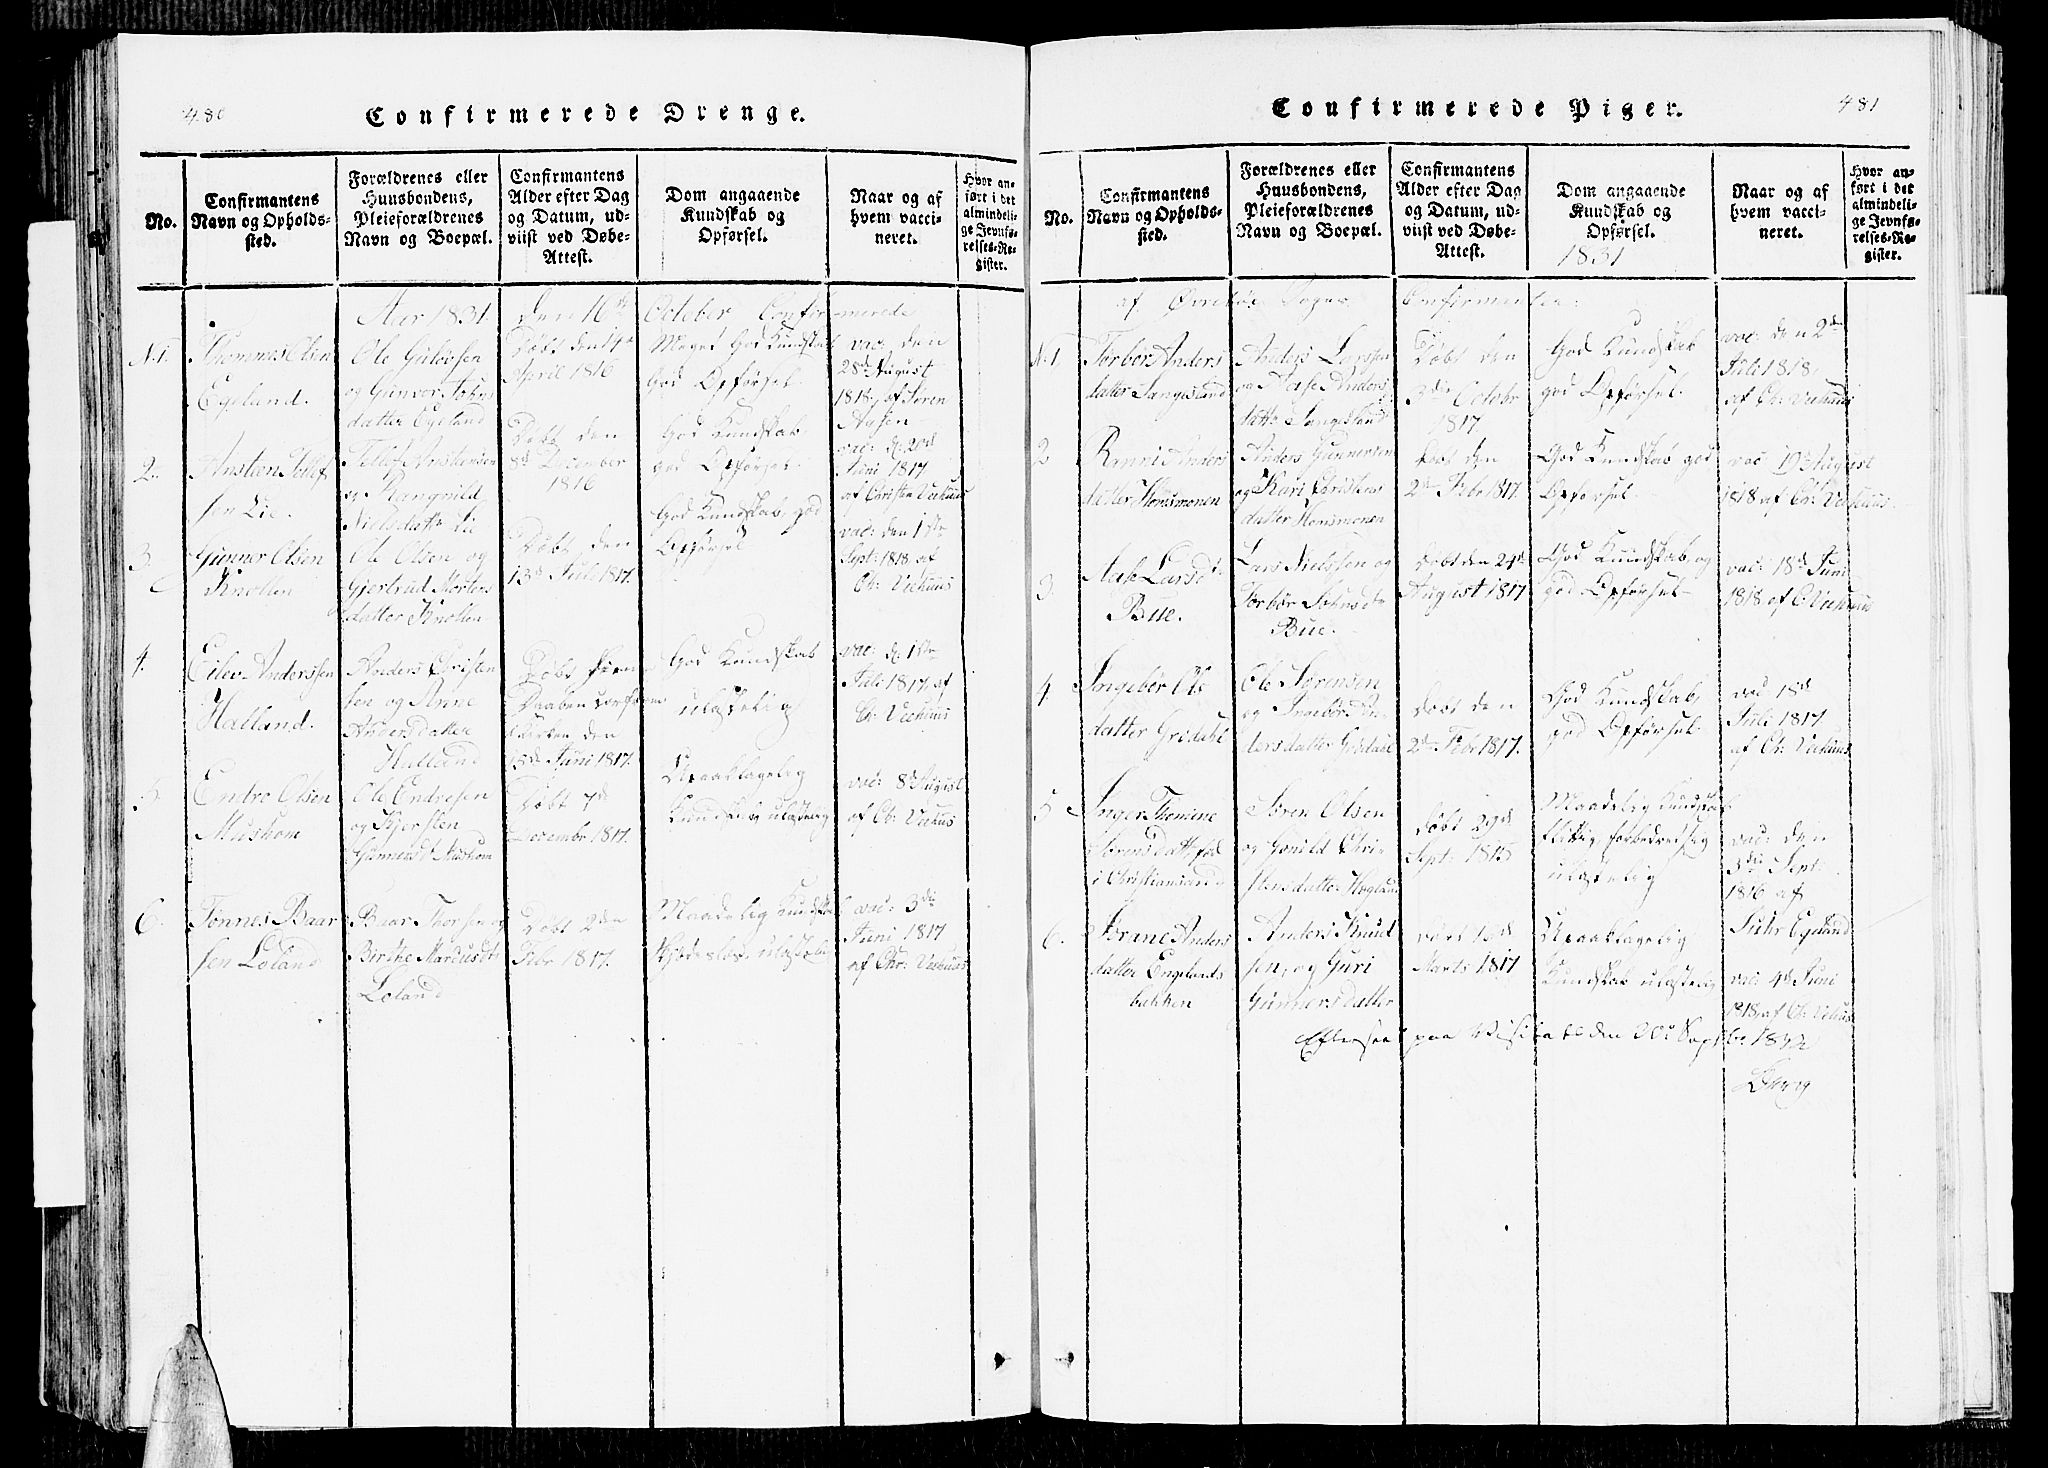 480
Confirmerede Drenge.
No.
Confirmantens
Navn og Opholds-
sted.
Forældrenes eller
Huusbondens,
Pleieforældrenes
Navn og Boepæl.
Confirmantens
Alder efter Dag
og Datum, ud-
viist ved Døbe-
Attest.
Dom angaaende
Kundskab og
Opførsel.
Naar og af
hvem vacci-
neret.
Hvor an-
ført i det
almindeli-
ge Jevnfø-
relses-Re-
gister.
Aar 1831 den 16de October Confirmerede
No 1.
Thommes Olsen
Egeland.
Ole Gulovsen
og Gunvor
datter Egeland
Døbt den 14de
April 1816
Meget God Kundskab
God Opførsel
vac: den
28de August
1818 af Søren
Aasen
2.
Austen Tellef
sen Lie.
Tellef Austensen
og Rangnild
Nielsdatter Lie
Døbt den
8de December
1816
God Kundskab
God Opførsel
vac: d. 20de
Juni 1817
af Christen Veehuus
3.
Gunner Olsen
Knollen
Ole Olsen og
Gjertrud Mortens
datter Knollen
Døbt den
13de Juli 1817.
God Kundskab, god
Opførsel
vac: den 1ste
Sept: 1818 af
Ch: Veehuus
4.
Eilev Anderssen
Halland.
Anders Christen
sen og Anne
Andersdatter
Halland
Døbt
Daaben
Kirken den
15de Juni 1817.
God Kundskab
ulastelig
vac: d. 1ste
Juli 1817 af
Ch: Veehuus
5.
Endre Olsen
Mushom
Ole Endresen
og Kjersten
Gunnersdt Mushom
Døbt 7de
Decembr 1817.
Upaaklagelig
Kundskab ulastelig
vac: 8de August
af Ch: Veehuus
6.
Tønnes Baar
sen Løland
Baar Thorsen og
Birthe Marcusdt
Løland
Døbt 2den
Febr 1817.
Maadelig Kundskab
ulastelig
vac: 3die
Juni 1817
af Chr: Veehuus
481
Confirmerede Piger.
No.
Confirmantens
Navn og Opholds-
sted.
Forældrenes eller
Huusbondens,
Pleieforældrenes
Navn og Boepæl.
Confirmantens
Alder efter Dag
og Datum, ud-
viist ved Døbe-
Attest.
Dom angaaende
Kundskab og
Opførsel.
1831
Naar og af
hvem vacci-
neret.
Hvor an-
ført i det
almindeli-
ge Jevnfø-
relses-Re-
gister.
af Øvrebøe Sogns Confirmenter:
No 1
Torbør Anders
datter Langeland
Anders Larssen
og Aase Anders
datter Langeland
Døbt den
3die Octobr
1817
God Kundskab
god Opførsel.
vac: den 2den
Juli 1818
af Ch: Veehuus
2
Ranni Anders
datter Homsmonen
Anders Gunnersen
og Kari Christens
datter Homsmonen
Døbt den
2den Febr 1817.
God Kundskab god
Opførsel.
vac 19de August
1818 af Ch: Veehuus.
3.
Aase Larsdt
Bue.
Lars Nielsen og
Torbør Johnsdr
Bue.
Døbt den 24de
August 1817
God Kundskab, og
god Opførsel
vac: 18de Juni
1818 af C: Veehuus
4.
Ingebør Ols
datter Grødahl
Ole Sørensen
og Ingebør
tersdatter Grødahl
Døbt den
2den Febr 1817.
God Kundskab,
god Opførsel
vac 18de
Juli 1817
af Ch: Veehuus
5
Inger Thomine
Sørensdatt: fød
i Christiansand
Søren Olsen
og Gunild Chri-
stensdatter
Døbt 29de
Sept: 1815
Maadelig Kundskab
flittig forbedret sig
ulastelig
vac: den
3die Sept:
1816 af
Egeland
6.
Jørane Anders
datter Engelands
bakken
Anders Knud
sen, og Guri
Gunnersdatter
Døbt 16de
Marts 1817
Upaaklagelig
Kundskab ulastelig
vac 4de Juni
1818 af Ch: Vehuus
Efterseet paa Visitats den 20de Septbr. 1832